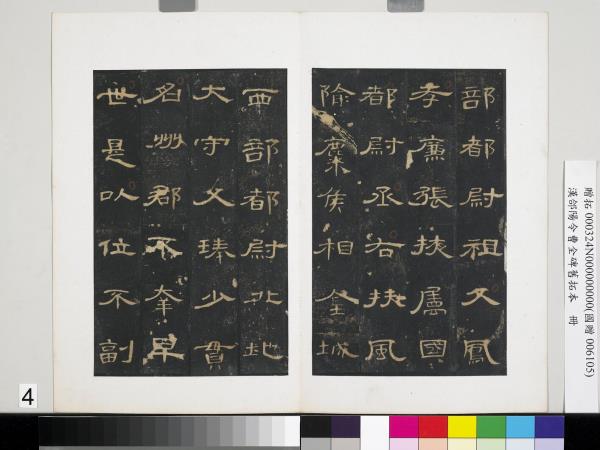 部都尉祖父鳳
孝廉張掖屬國
都尉丞右扶風
隃麋侯相金城
西部都尉北地
大守父琫少貫
名州郡不幸早
世是以位不副
贈拓 000324N000000000(國贈 006105)
漢郃陽令曹全碑舊拓本 冊
4